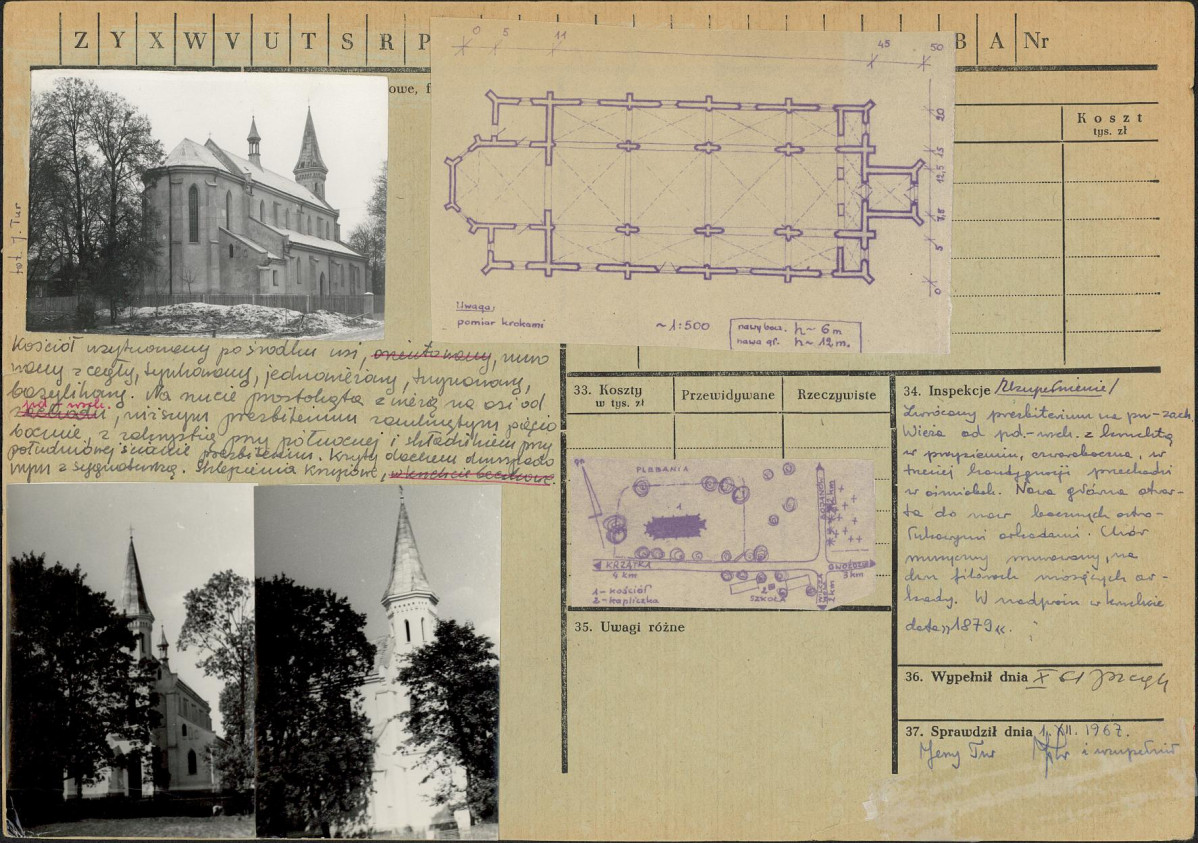 Z Y X W V U T S R P
B A Nr
owe, f
Koszt
tys. zł
fot. J. Tur
0 5 11 45 50
20
15
12,5
7,5
5
0
Uwaga:
pomiar krokami
~1:500
nawy bocz. h~6m
nawa gł. h~12m.
Kościół usytuowany po środku wsi, orientowany, muro
wany z cegły, tynkowany, jednowieżowy, trzynawowy,
bazylikowy. Na rzucie prostokąta z wieżą na osi od
zachodu, niższym prezbiterium zamkniętym pięcio
bocznie, z zakrystią przy północnej i składzikiem przy
południowej ścianie prezbiterium. Kryty dachem dwuspado
wym z sygnaturką. Sklepienia krzyżowe,
33. Koszty
w tys. zł
Przewidywane
Rzeczywiste
PLEBANIA
1
KRZĄTKA
4 km
1 - kościół
2 - kapliczka
2
SZKOŁA
3 km
2 km
35. Uwagi różne
34. Inspekcje /Uzupełnienie/
Zwrócony prezbiterium na pn-zach.
Wieża od pd.-wsch. z kruchtą
w przyziemiu, czworoboczna, w
trzeciej kondygnacji przechodzi
w ośmiobok. Nawa główna otwar-
ta do naw bocznych ostro-
łukowymi arkadami. Chór
muzyczny murowany, na
dwu filarach niosących ar-
kady. W nadprożu w kruchcie
data „1879".
36. Wypełnił dnia X 61
37. Sprawdził dnia 1. XII. 1967.
Jerzy Tur i uzupełnił